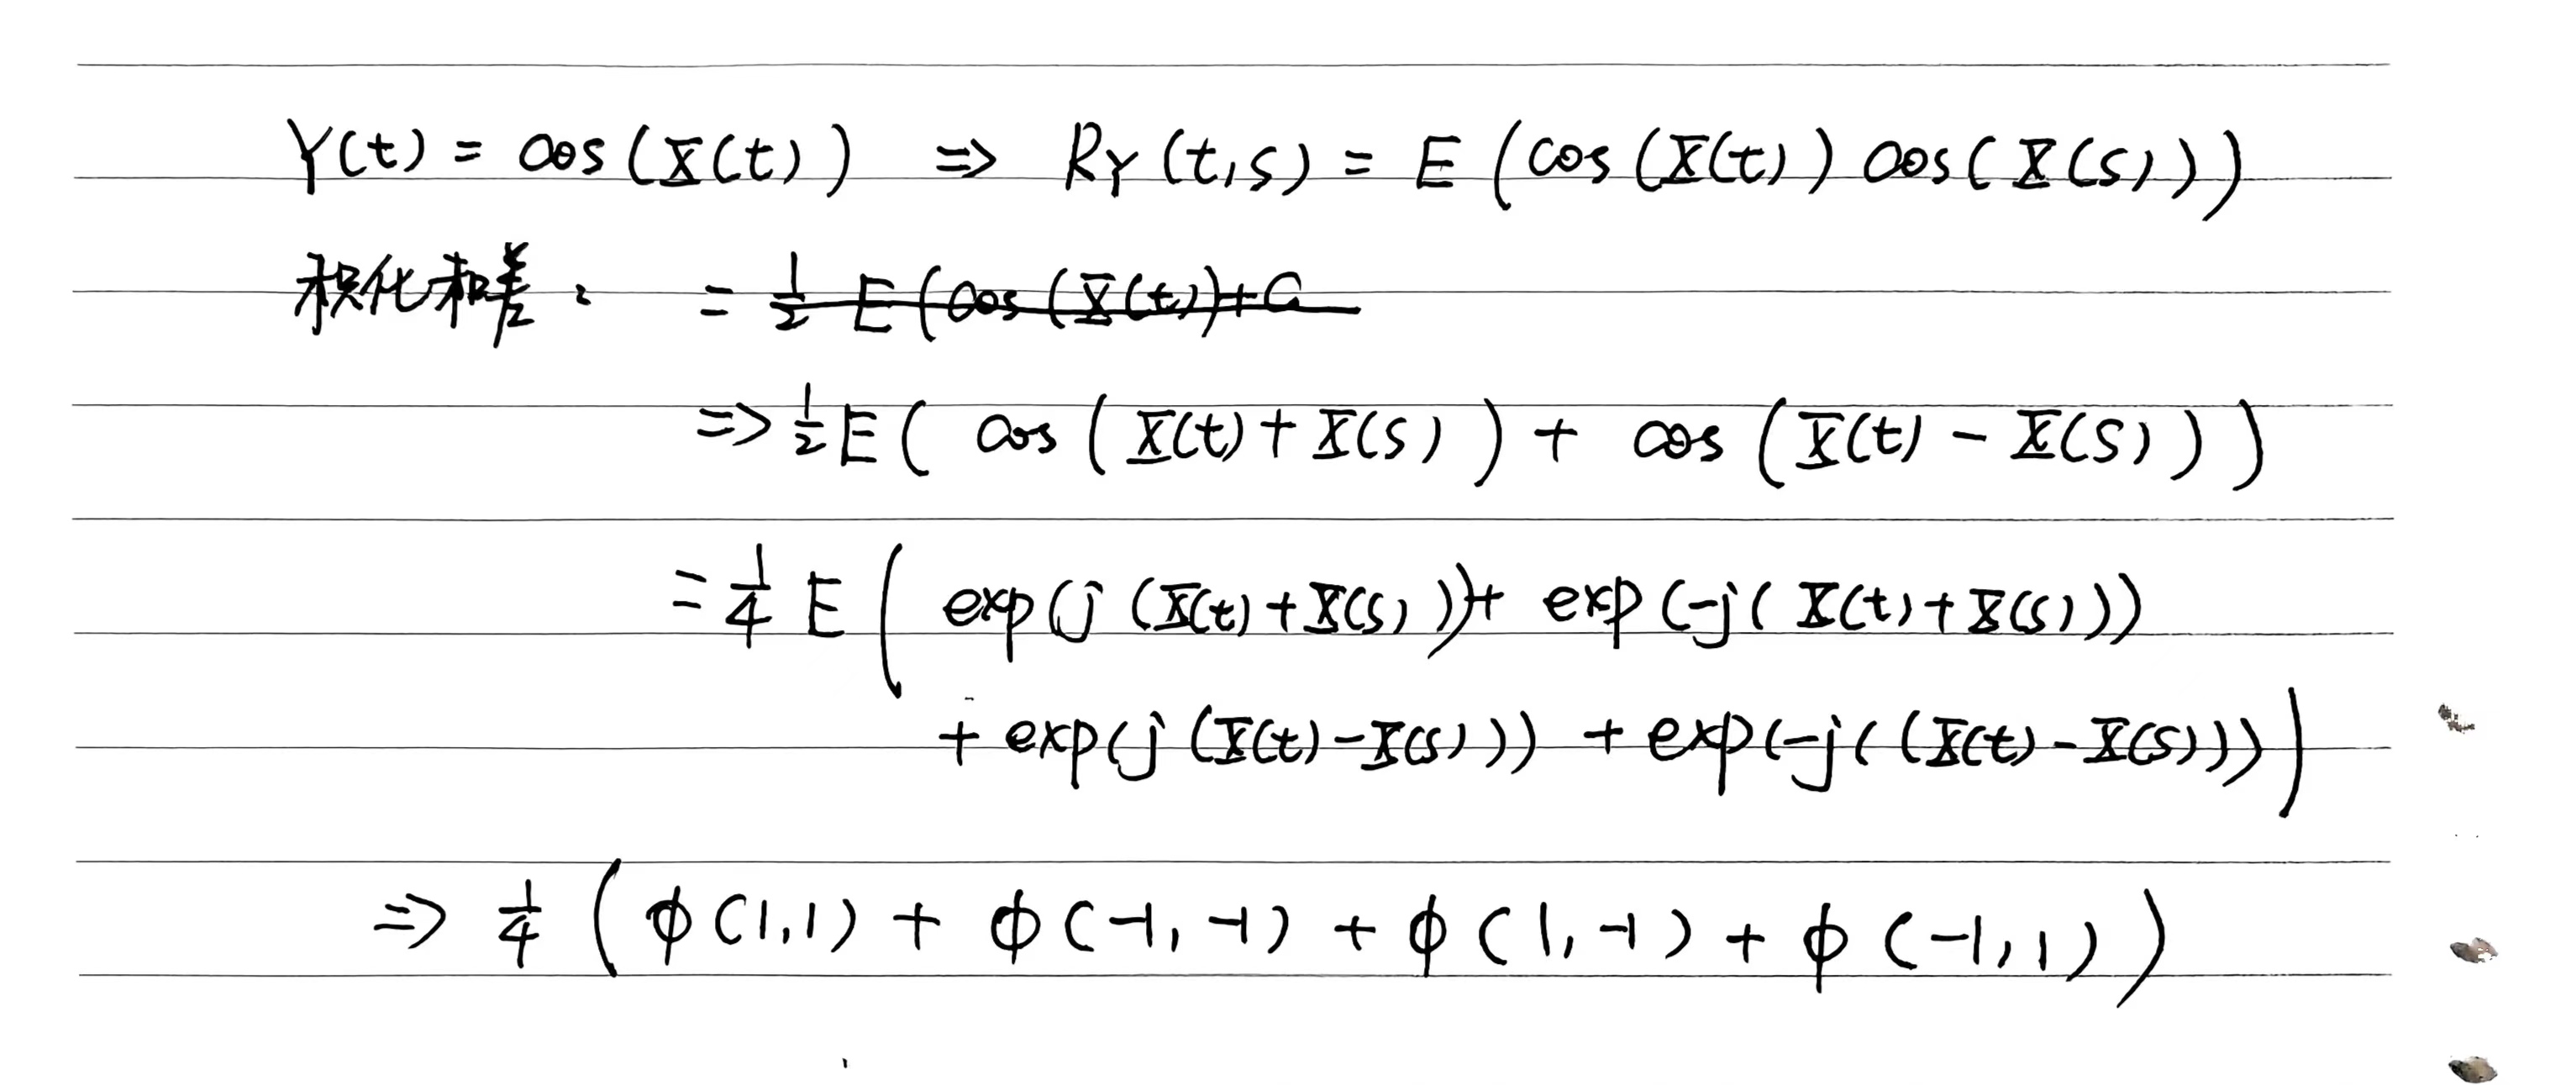 Y(t) = cos(X(t)) ⇒ R_Y(t,s) = E(cos(X(t)) cos(X(s)))
积化和差: = ~~1/2 E(cos(X(t))+C~~
⇒ 1/2 E( cos(X(t)+X(s)) + cos(X(t) - X(s)))
= 1/4 E( exp(j(X(t)+X(s)))+ exp(-j(X(t)+X(s)))
+ exp(j(X(t)-X(s))) + exp(-j((X(t)-X(s))))
⇒ 1/4 ( ϕ(1,1) + ϕ(-1,-1) + ϕ(1,-1) + ϕ(-1,1))